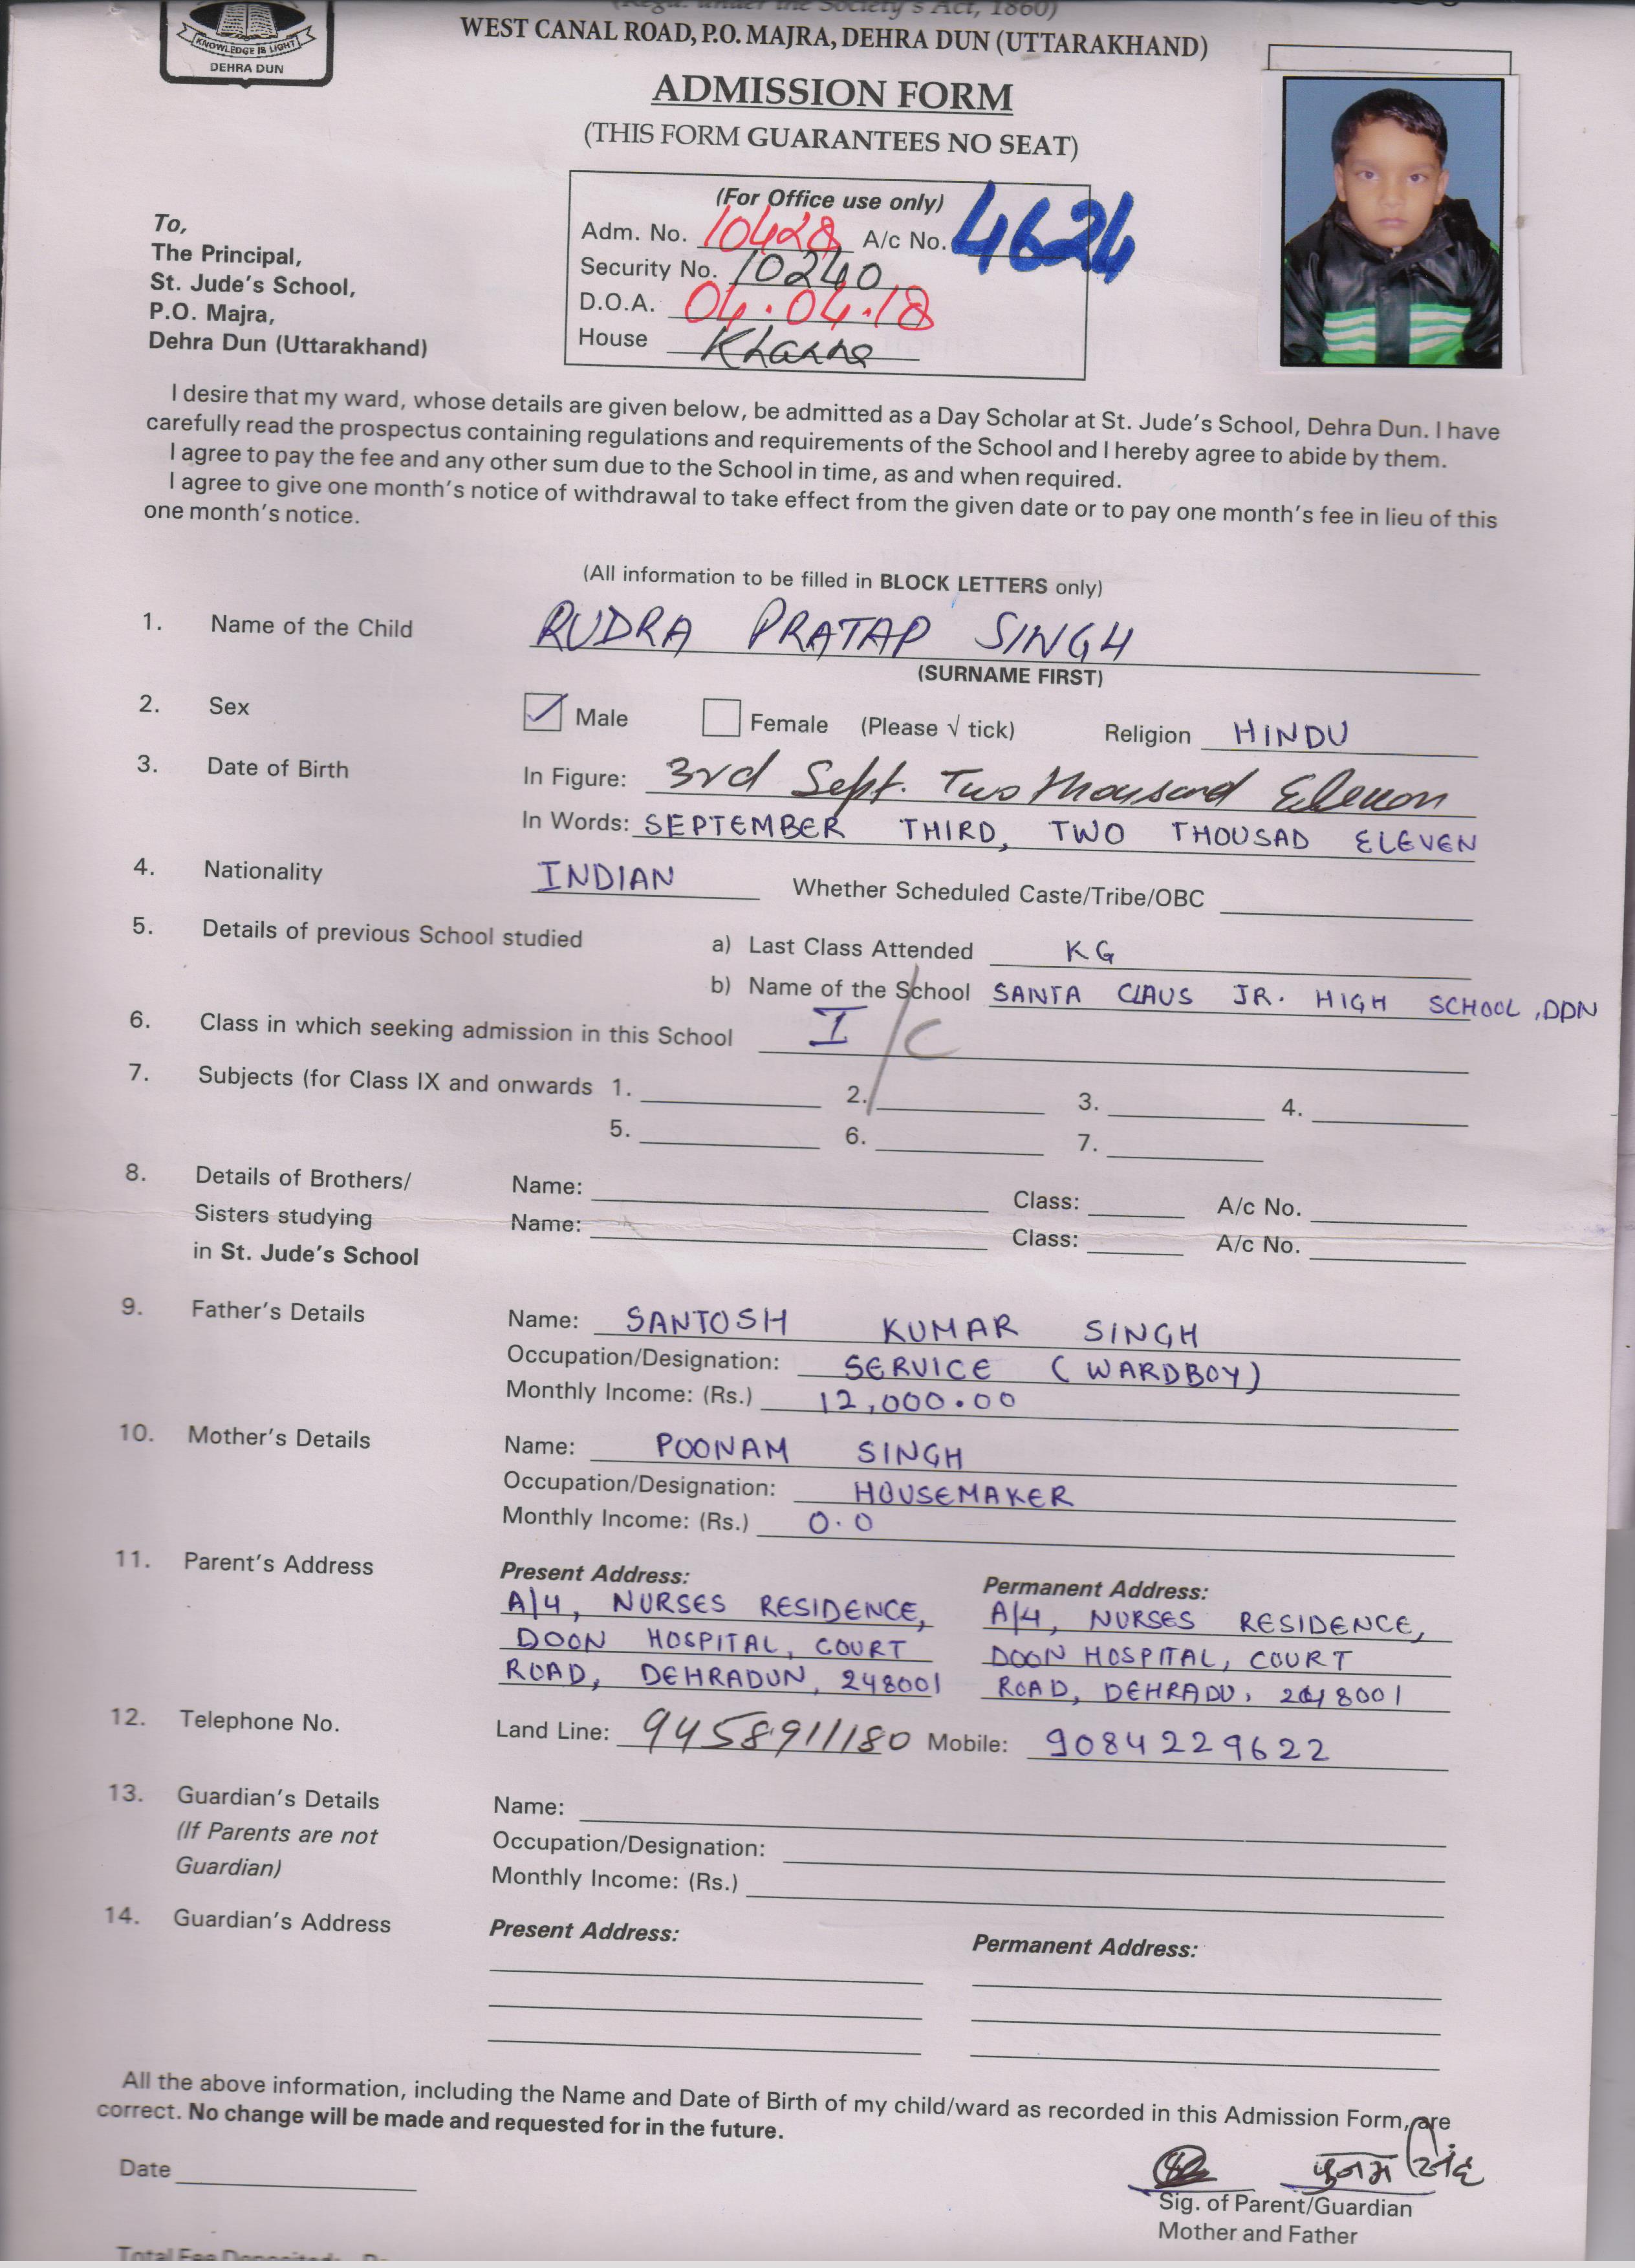 (Regd. under the Society's Act, 1860)
KNOWLEDGE IS LIGHT
DEHRA DUN
WEST CANAL ROAD, P.O. MAJRA, DEHRA DUN (UTTARAKHAND)
ADMISSION FORM
(THIS FORM GUARANTEES NO SEAT)
(For Office use only)
Adm. No. 10428 A/c No. 4624
Security No. 10240
D.O.A. 04.04.18
House Khanna
To,
The Principal,
St. Jude's School,
P.O. Majra,
Dehra Dun (Uttarakhand)
I desire that my ward, whose details are given below, be admitted as a Day Scholar at St. Jude's School, Dehra Dun. I have
carefully read the prospectus containing regulations and requirements of the School and I hereby agree to abide by them.
I agree to pay the fee and any other sum due to the School in time, as and when required.
I agree to give one month's notice of withdrawal to take effect from the given date or to pay one month's fee in lieu of this
one month's notice.
(All information to be filled in BLOCK LETTERS only)
1. Name of the Child RUDRA PRATAP SINGH
(SURNAME FIRST)
2. Sex Male Female (Please √ tick) Religion HINDU
3. Date of Birth In Figure: 3rd Sept. Two thousand Eleven
In Words: SEPTEMBER THIRD, TWO THOUSAD ELEVEN
4. Nationality INDIAN Whether Scheduled Caste/Tribe/OBC
5. Details of previous School studied a) Last Class Attended KG
b) Name of the School SANTA CLAUS JR. HIGH SCHOOL, DDN
6. Class in which seeking admission in this School I / C
7. Subjects (for Class IX and onwards 1. 2. 3. 4.
5. 6. 7.
8. Details of Brothers/ Name: Class: A/c No.
Sisters studying Name: Class: A/c No.
in St. Jude's School
9. Father's Details Name: SANTOSH KUMAR SINGH
Occupation/Designation: SERVICE (WARDBOY)
Monthly Income: (Rs.) 12,000.00
10. Mother's Details Name: POONAM SINGH
Occupation/Designation: HOUSEMAKER
Monthly Income: (Rs.) 0.0
11. Parent's Address Present Address: Permanent Address:
A/4, NURSES RESIDENCE, A/4, NURSES RESIDENCE,
DOON HOSPITAL, COURT DOON HOSPITAL, COURT
ROAD, DEHRADUN, 248001 ROAD, DEHRADU, 248001
12. Telephone No. Land Line: 9458911180 Mobile: 9084229622
13. Guardian's Details Name:
(If Parents are not Occupation/Designation:
Guardian) Monthly Income: (Rs.)
14. Guardian's Address Present Address: Permanent Address:
All the above information, including the Name and Date of Birth of my child/ward as recorded in this Admission Form, are
correct. No change will be made and requested for in the future.
Date
पुनम सिंह
Sig. of Parent/Guardian
Mother and Father
Total Fee Deposited: